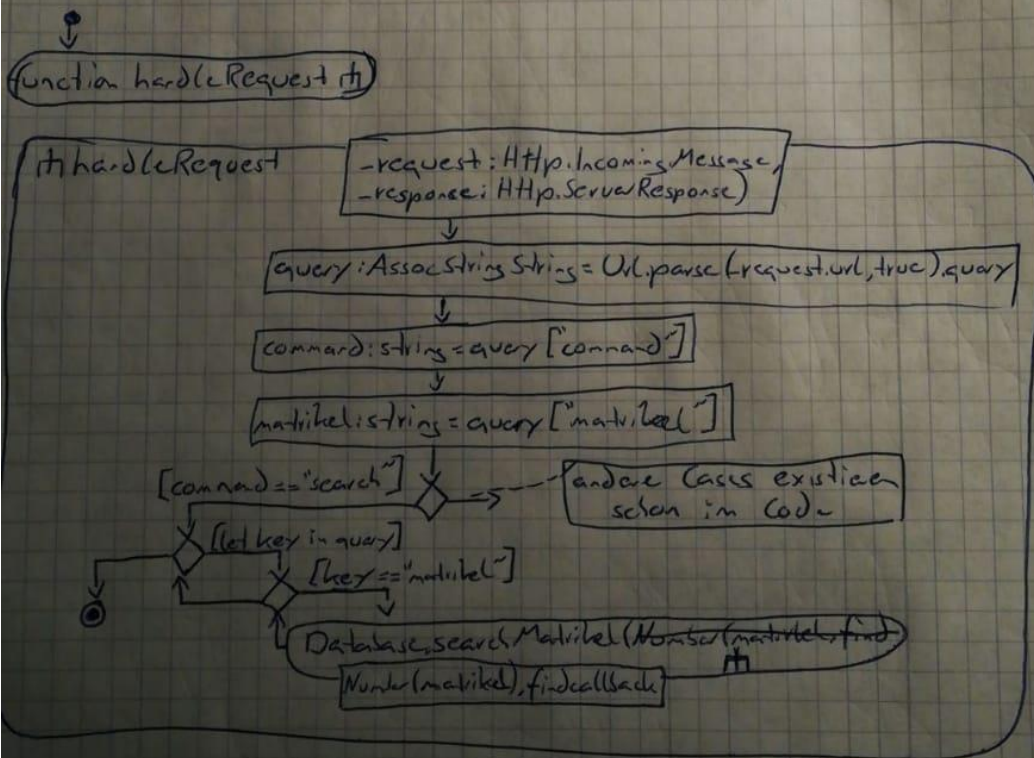 function handleRequest
handleRequest
_request: Http.IncomingMessage,
_response: Http.ServerResponse)
query: AssocStringString = Url.parse(_request.url, true).query
command: string = query["command"]
matrikel: string = query["matrikel"]
[command == "search"]
andere Cases existieren
schon im Code
[let key in query]
[key == "matrikel"]
Database.searchMatrikel(Number(matrikel, find
Number(matrikel), findcallback